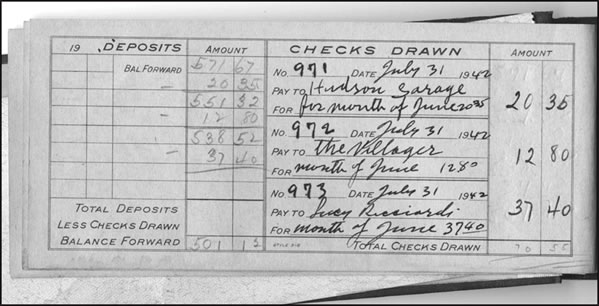 19 DEPOSITS AMOUNT
BAL FORWARD 571 67
— 20 35
551 32
— 12 80
538 52
— 37 40
TOTAL DEPOSITS
LESS CHECKS DRAWN
BALANCE FORWARD 501 12
CHECKS DRAWN AMOUNT
NO. 971 DATE July 31 1942
PAY TO Hudson Garage
FOR for month of June 20 35 20 35
NO. 972 DATE July 31 1942
PAY TO the Villager
FOR month of June 12 80 12 80
NO. 973 DATE July 31 1942
PAY TO Lucy Ricciardi
FOR month of June 37 40 37 40
TOTAL CHECKS DRAWN 70 55